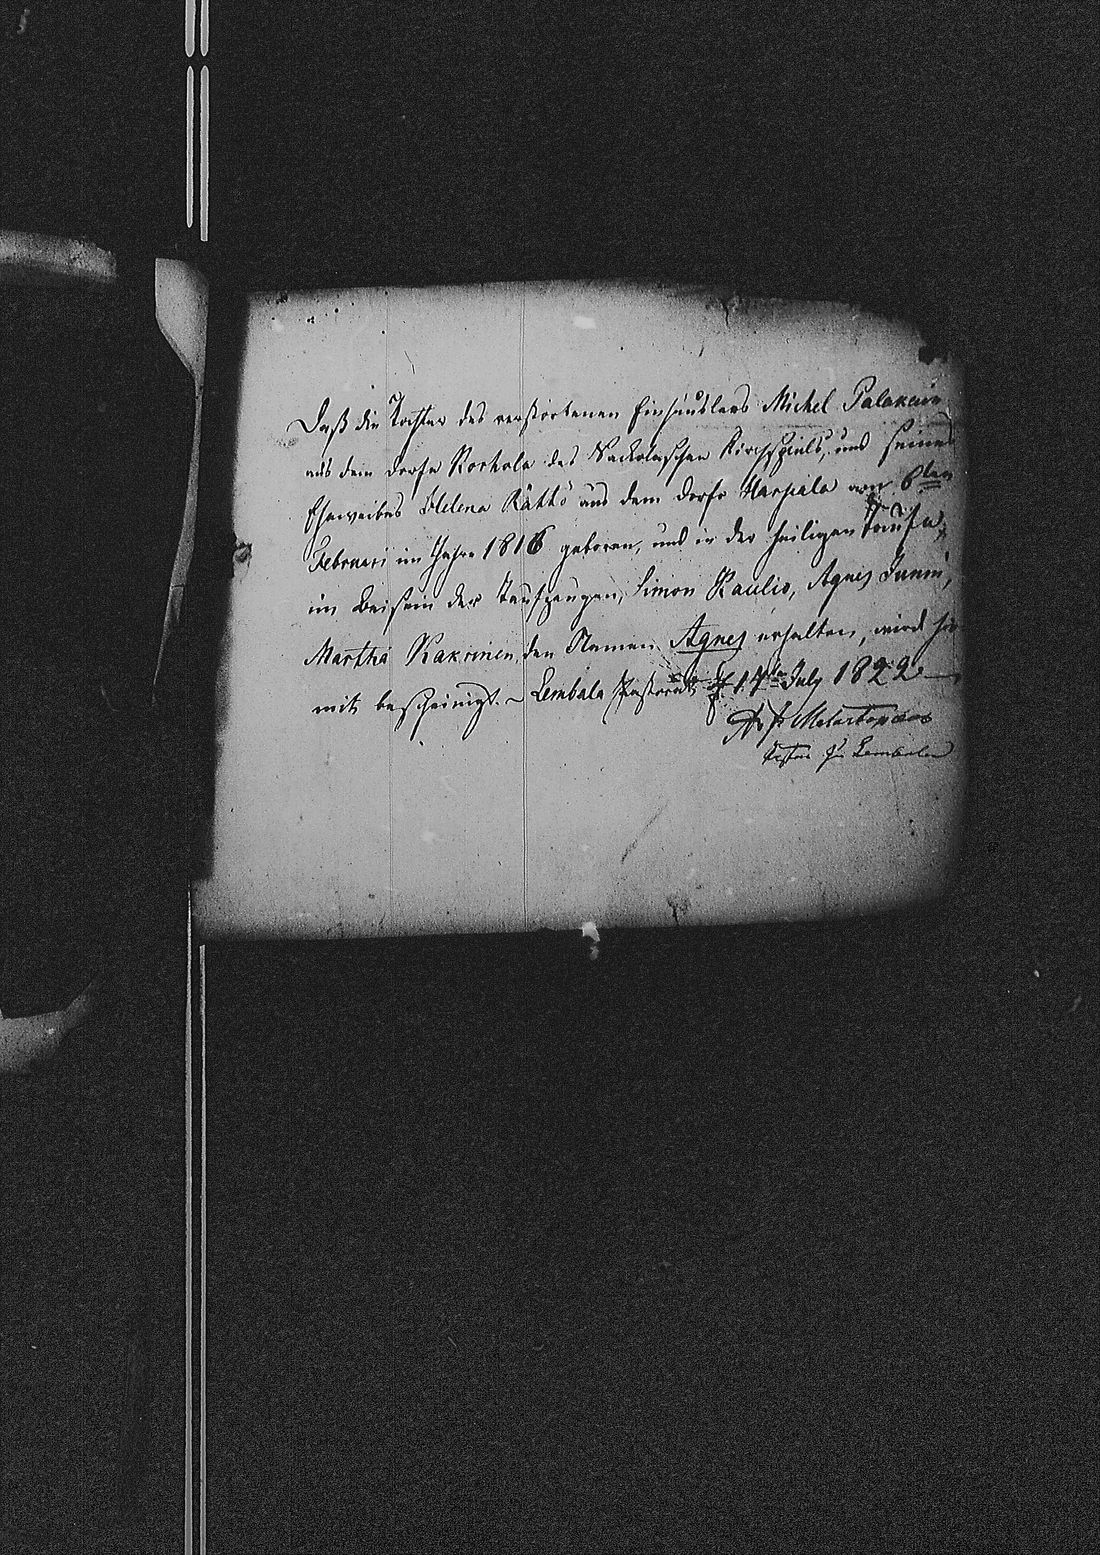 Daß die Tochter des verstorbenen Einhäuslers Michel Palakain
aus dem Dorfe Korhola des Sackolaschen Kirchspiels, und seines
Eheweibes Helena Rättö aus dem Dorfe Harpala am 6ten
Februari im Jahre 1816 geboren, und in der heiligen Taufe,
im Beisein der Taufzeugen, Simon Paulio, Agnes Junni,
Martha Kakoinen, den Namen Agnes erhalten, wird hie
mit bescheinigt. ~ Lembala Pastorat d 17te July 1822
Pastor zu Lembala